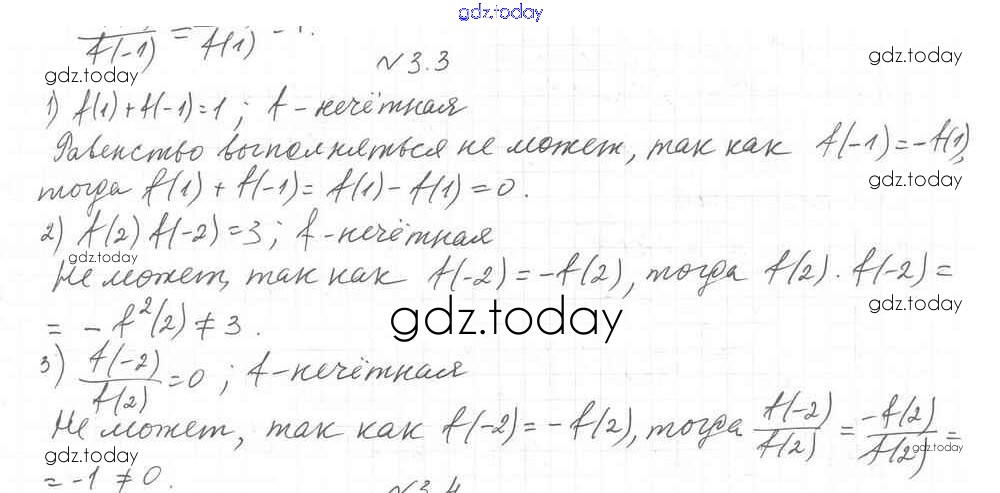 gdz.today
f(-1) = f(1) = 1.
N 3.3
gdz.today
gdz.today
1) f(1) + f(-1) = 1 ; f - нечётная
Равенство выполняться не может, так как f(-1) = -f(1),
gdz.today
gdz.today
тогда f(1) + f(-1) = f(1) - f(1) = 0.
2) f(2) f(-2) = 3 ; f - нечётная
gdz.today
Не может, так как f(-2) = -f(2), тогда f(2) · f(-2) =
gdz.today
gdz.today
= - f²(2) ≠ 3.
3) f(-2)/f(2) = 0 ; f - нечётная
Не может, так как f(-2) = -f(2), тогда f(-2)/f(2) = -f(2)/f(2) =
gdz.today
gdz.today
= -1 ≠ 0.
N 3.4